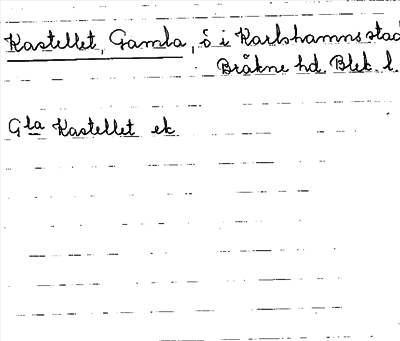 Kastellet, Gamla, ö i Karlshamns stad
Bräkne hd. Blek. l.
Gla Kastellet ek.